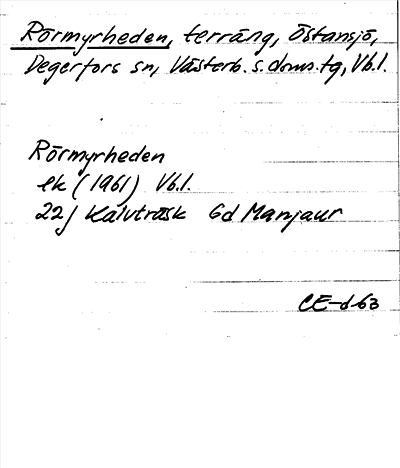 Rörmyrheden, terräng, Östansjö,
Degerfors sn, Västerb. s. doms. tg, Vb.l.
Rörmyrheden
ek (1961) Vb.l.
22j Kalvträsk 6d Manjaur
CE-d 63